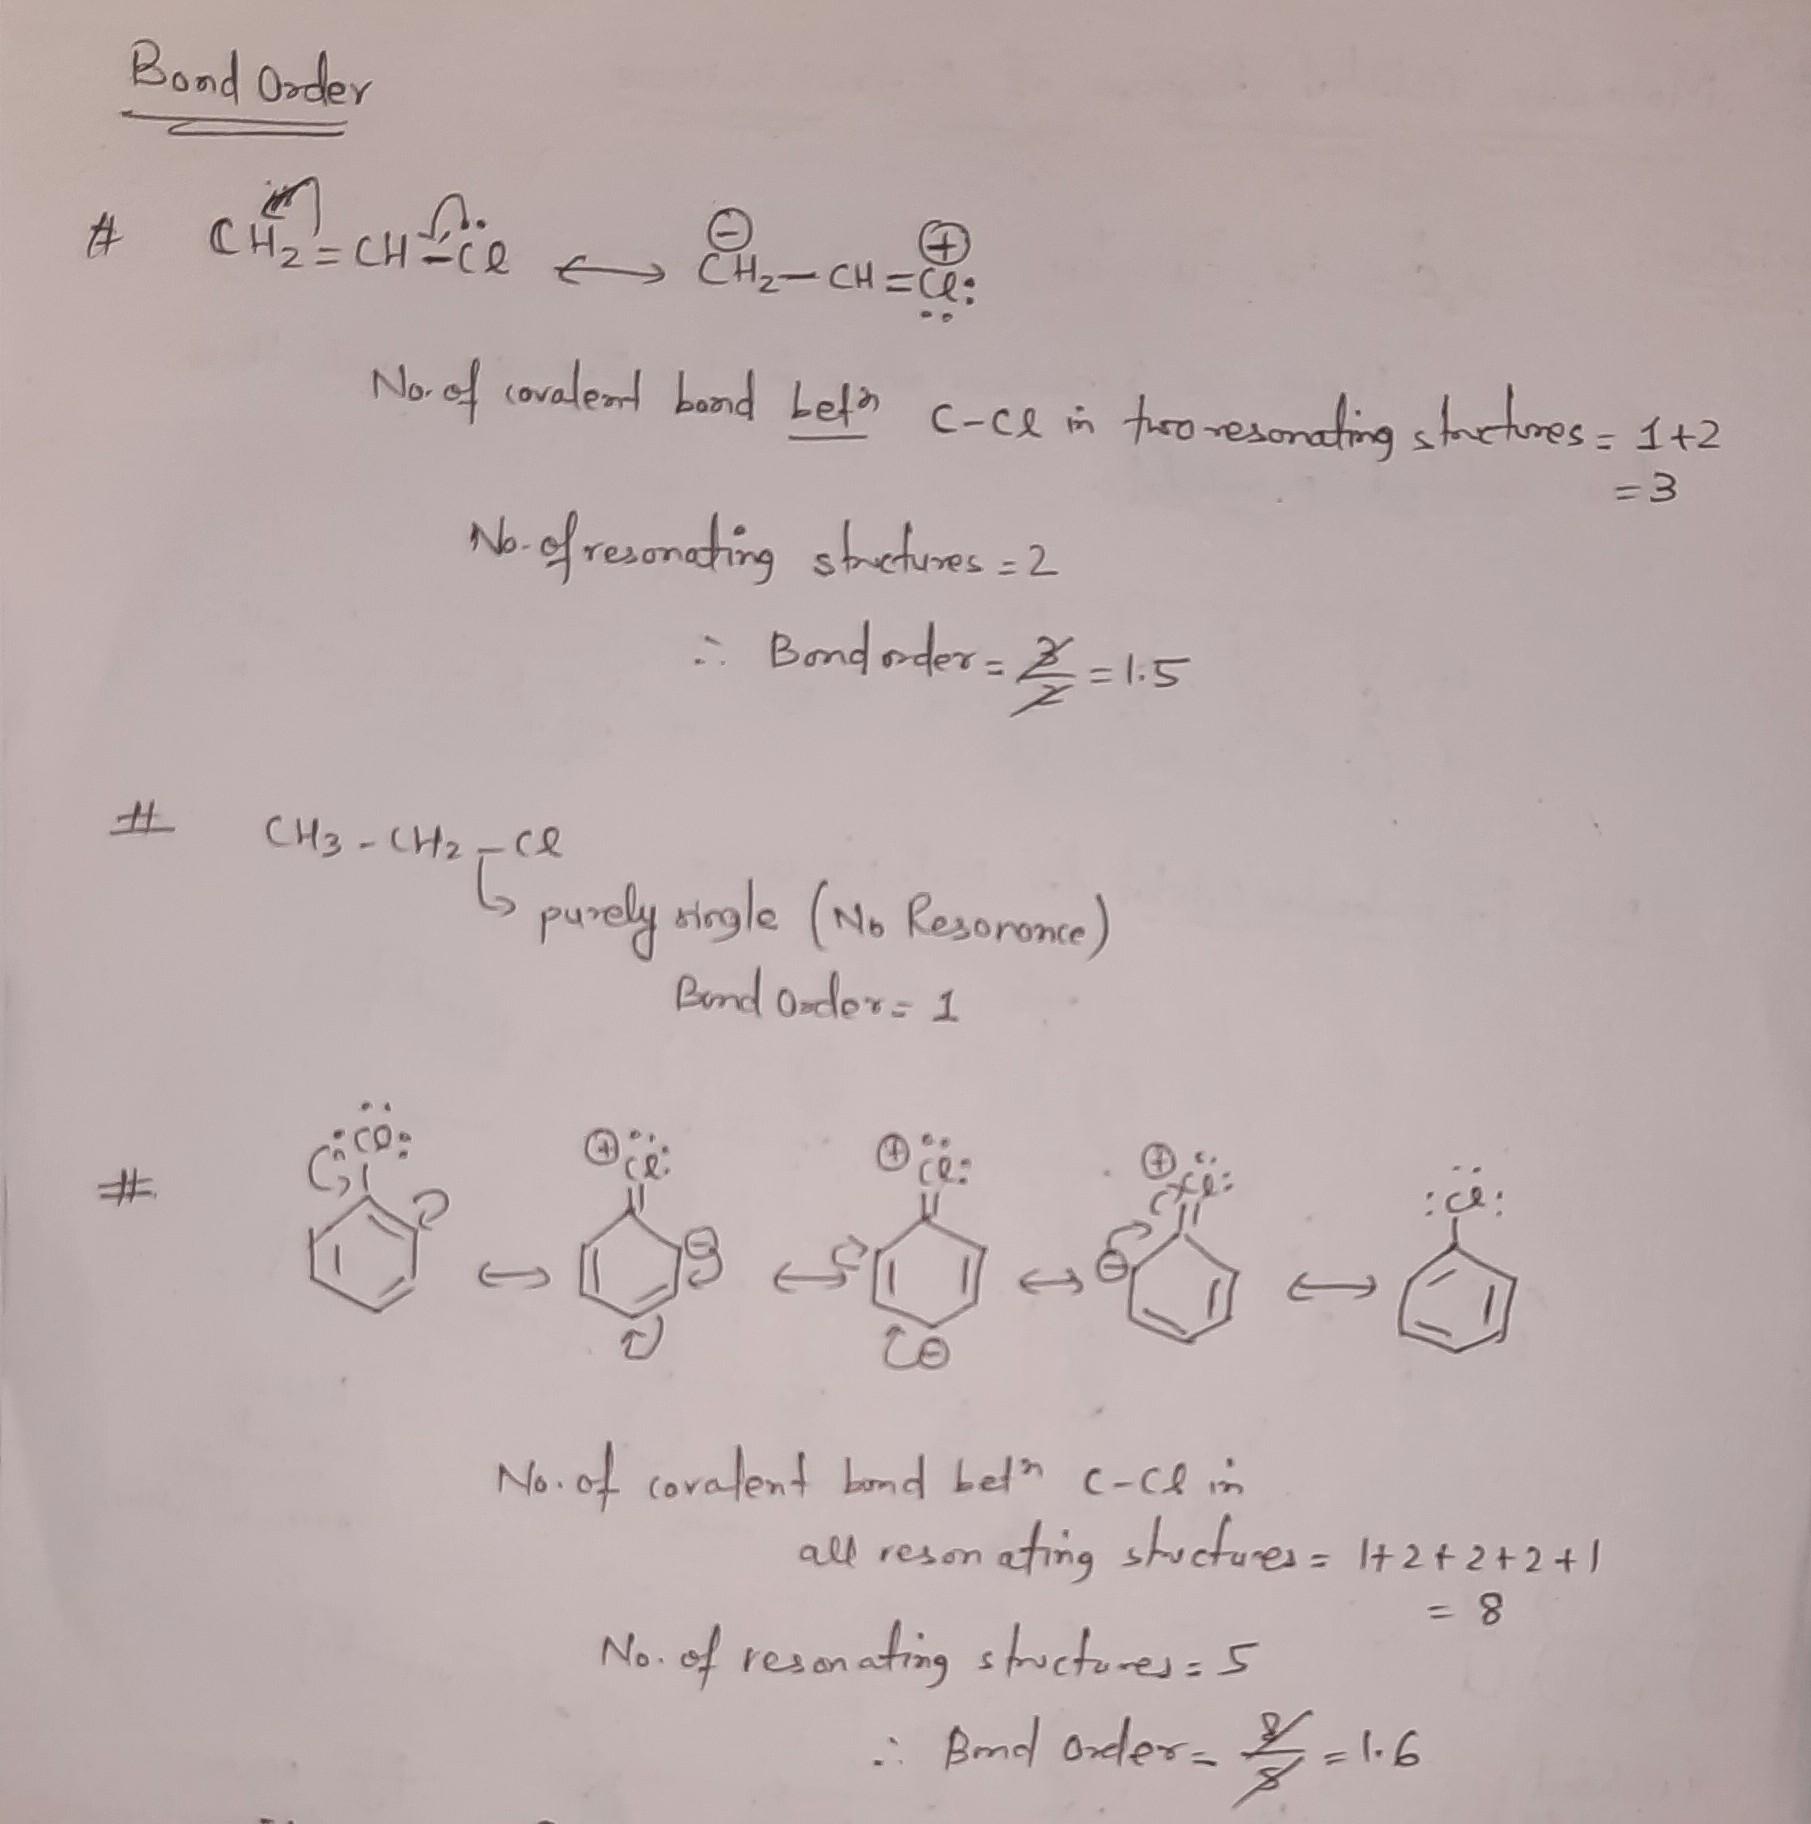 Bond Order
# CH₂=CH-Cl ⟷ CH₂-CH=Cl:
No. of covalent bond betⁿ C-Cl in two resonating structures = 1+2
= 3
No. of resonating structures = 2
∴ Bond order = 3/2 = 1.5
# CH3-CH2-Cl
purely single (No Resonance)
Bond Order = 1
# :Cl: ⟷ ⊕Cl: ⊖ ⟷ ⊕Cl: ⊖ ⟷ ⊕Cl: ⊖ ⟷ :Cl:
No. of covalent bond betⁿ C-Cl in
all resonating structures = 1+2+2+2+1
= 8
No. of resonating structures = 5
∴ Bond order = 8/5 = 1.6